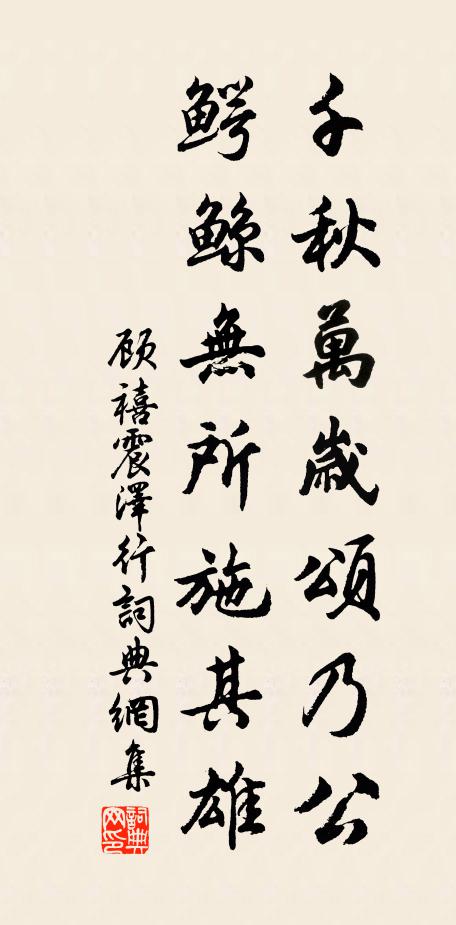 千秋萬歲頌乃公
鰐鯨無所施其雄
顾禧震澤行詞典網集
詞典网印